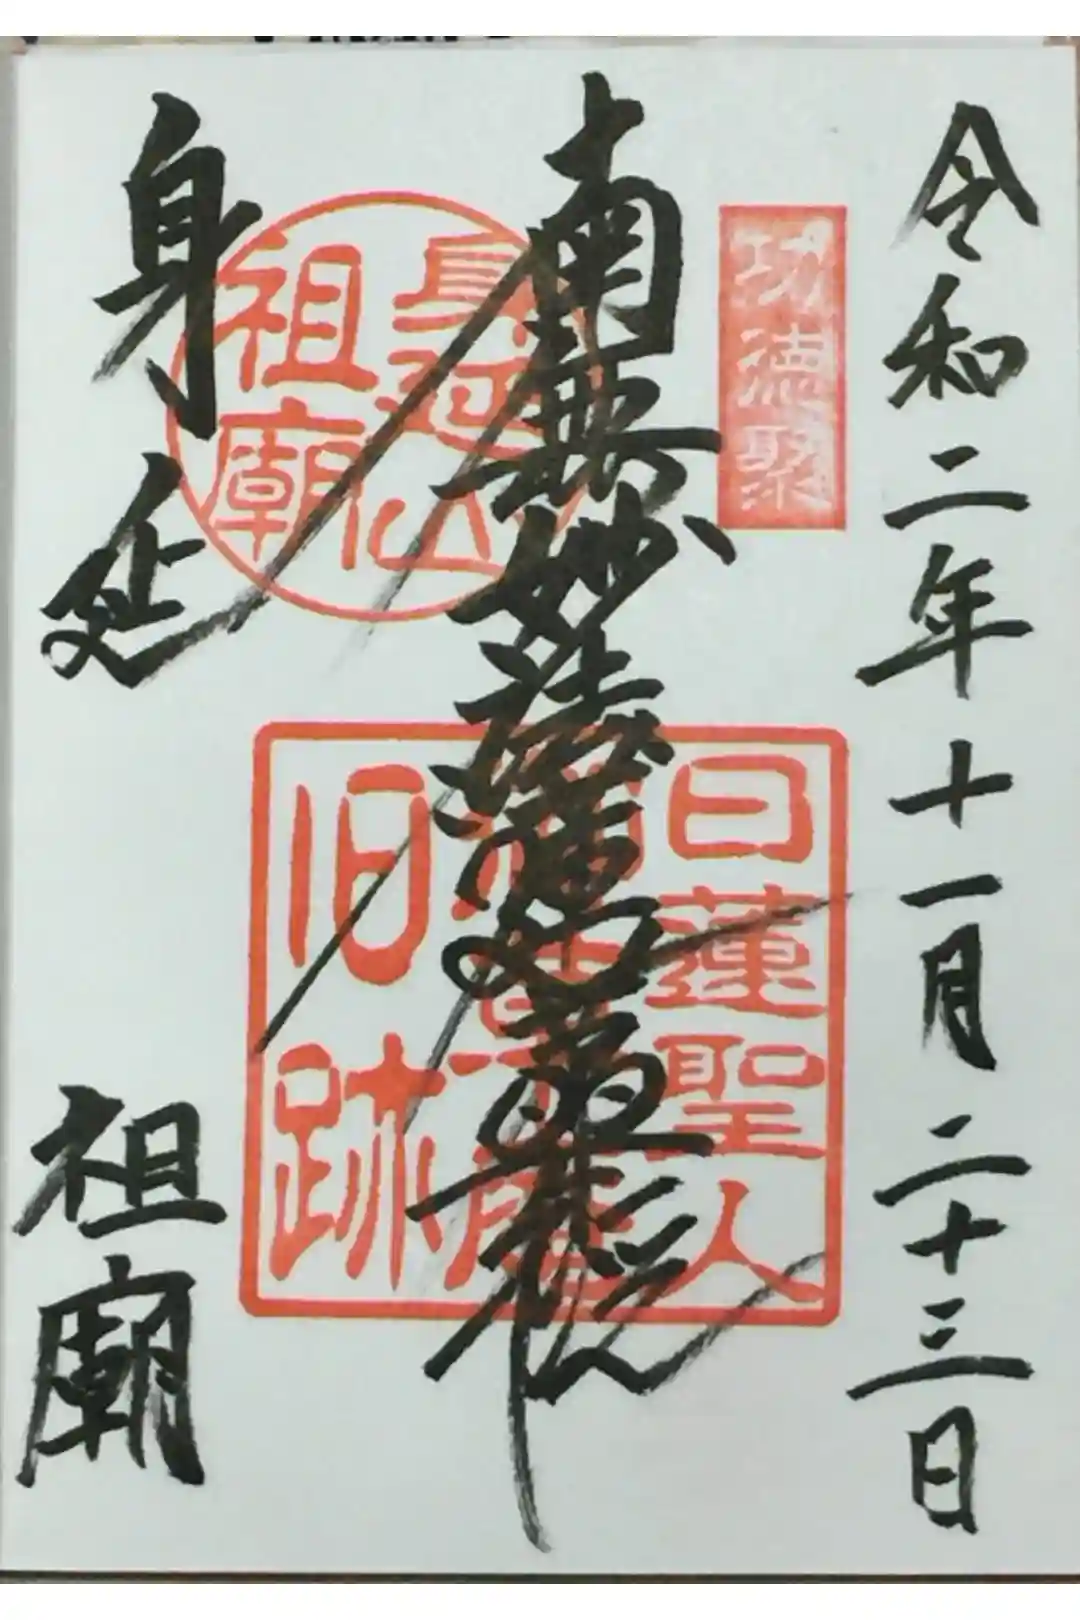 令和二年十一月二十三日
功徳聚
南無妙法蓮華経
身延山
祖廟
日蓮聖人
御草庵
旧跡
身延
祖廟